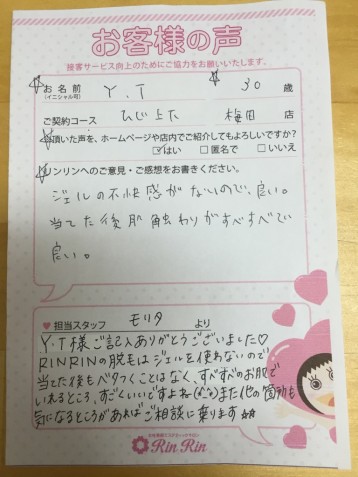 お客様の声
接客サービス向上のためにご協力をお願いいたします。
お名前 Y.T 30歳
(イニシャル可)
ご契約コース ひじ上下 梅田 店
頂いた声を、ホームページや店内でご紹介してもよろしいですか?
☑はい □匿名で □いいえ
リンリンへのご意見・ご感想をお書きください。
ジェルの不快感がないので、良い。
当てた後肌触わりがすべすべで
良い。
♥担当スタッフ モリタ より
Y.T様ご記入ありがとうございました♡
RINRINの脱毛はジェルを使わないので
当てた後もベタつくことはなく、すべすべのお肌で
いれるところ、すごくいいですよね(^^)また他の箇所も
気になるところがあればご相談に乗ります☆☆
Rin Rin